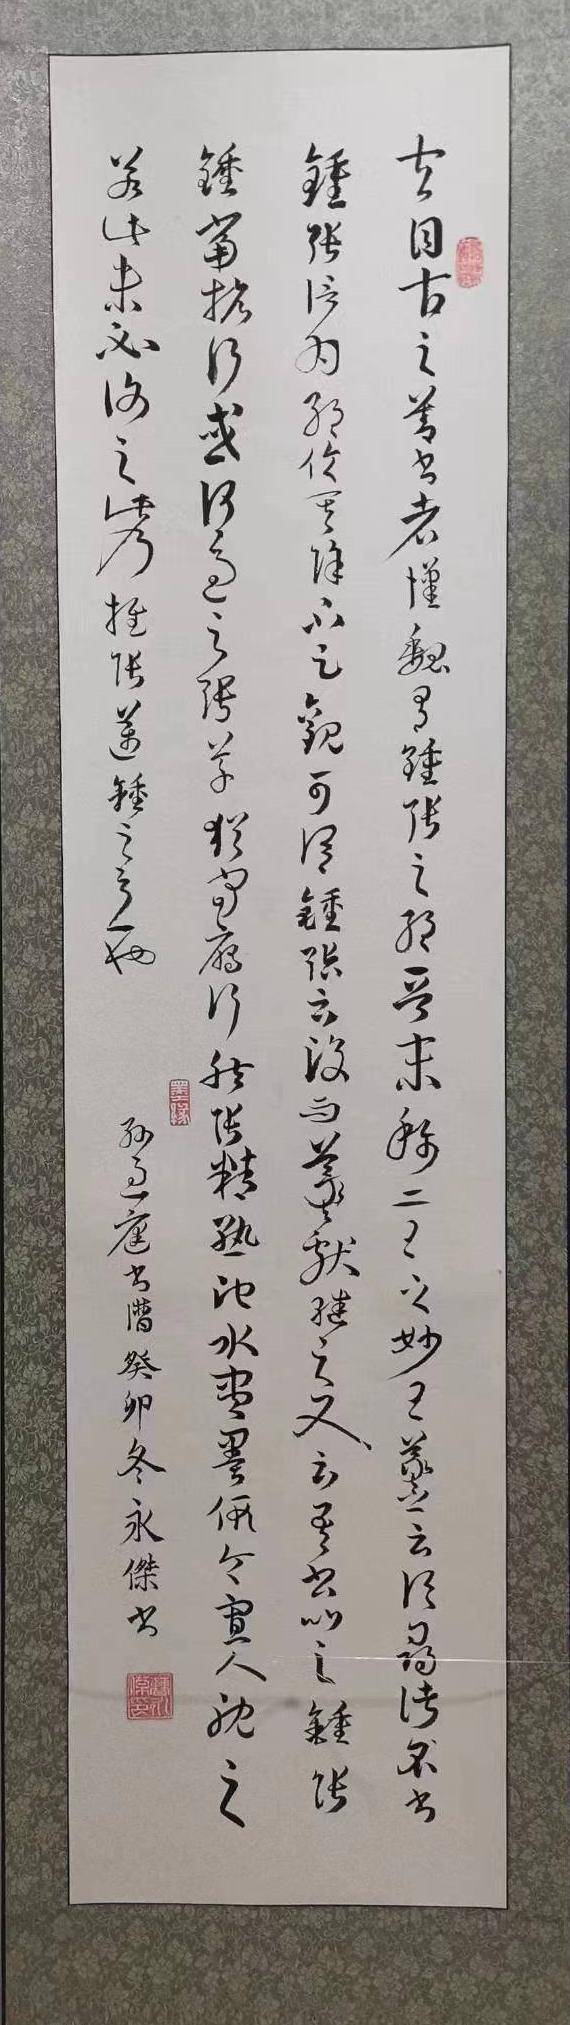 夫自古之善書者漢魏有鍾張之絕晉末稱二王之妙王羲之云頃尋諸名書
鍾張信為絕倫其餘不足觀可謂鍾張云沒而羲獻繼之又云吾書比之鍾張
鍾當抗行或謂過之張草猶當雁行然張精熟池水盡墨假令寡人耽之
若此未必謝之此乃推張邁鍾之意也
孫過庭書譜癸卯冬永傑書
墨緣